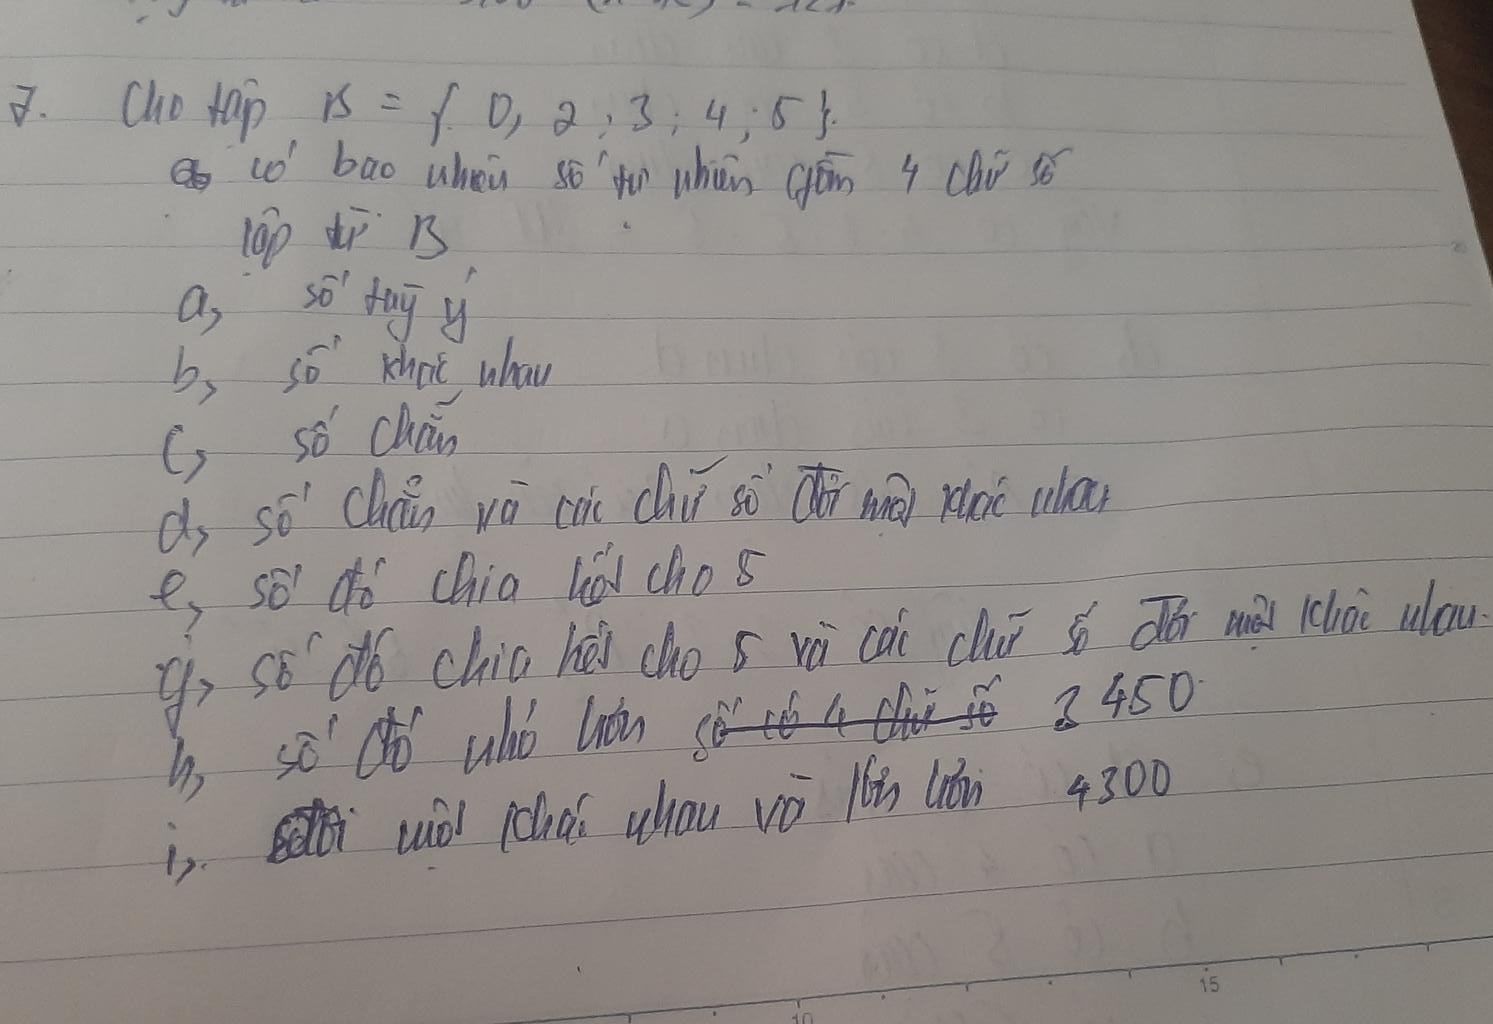 7. Cho tập B = { 0, 2; 3; 4; 5 }.
có bao nhiêu số tự nhiên gồm 4 chữ số
lập từ B
a, số tuỳ ý
b, số khác nhau
c, số chẵn
d, số chẵn và các chữ số đôi một khác nhau
e, số đó chia hết cho 5
g, số đó chia hết cho 5 và các chữ số đôi một khác nhau.
h, số đó nhỏ hơn số có 4 chữ số 3450
i, đôi một khác nhau và lớn hơn 4300
10 15